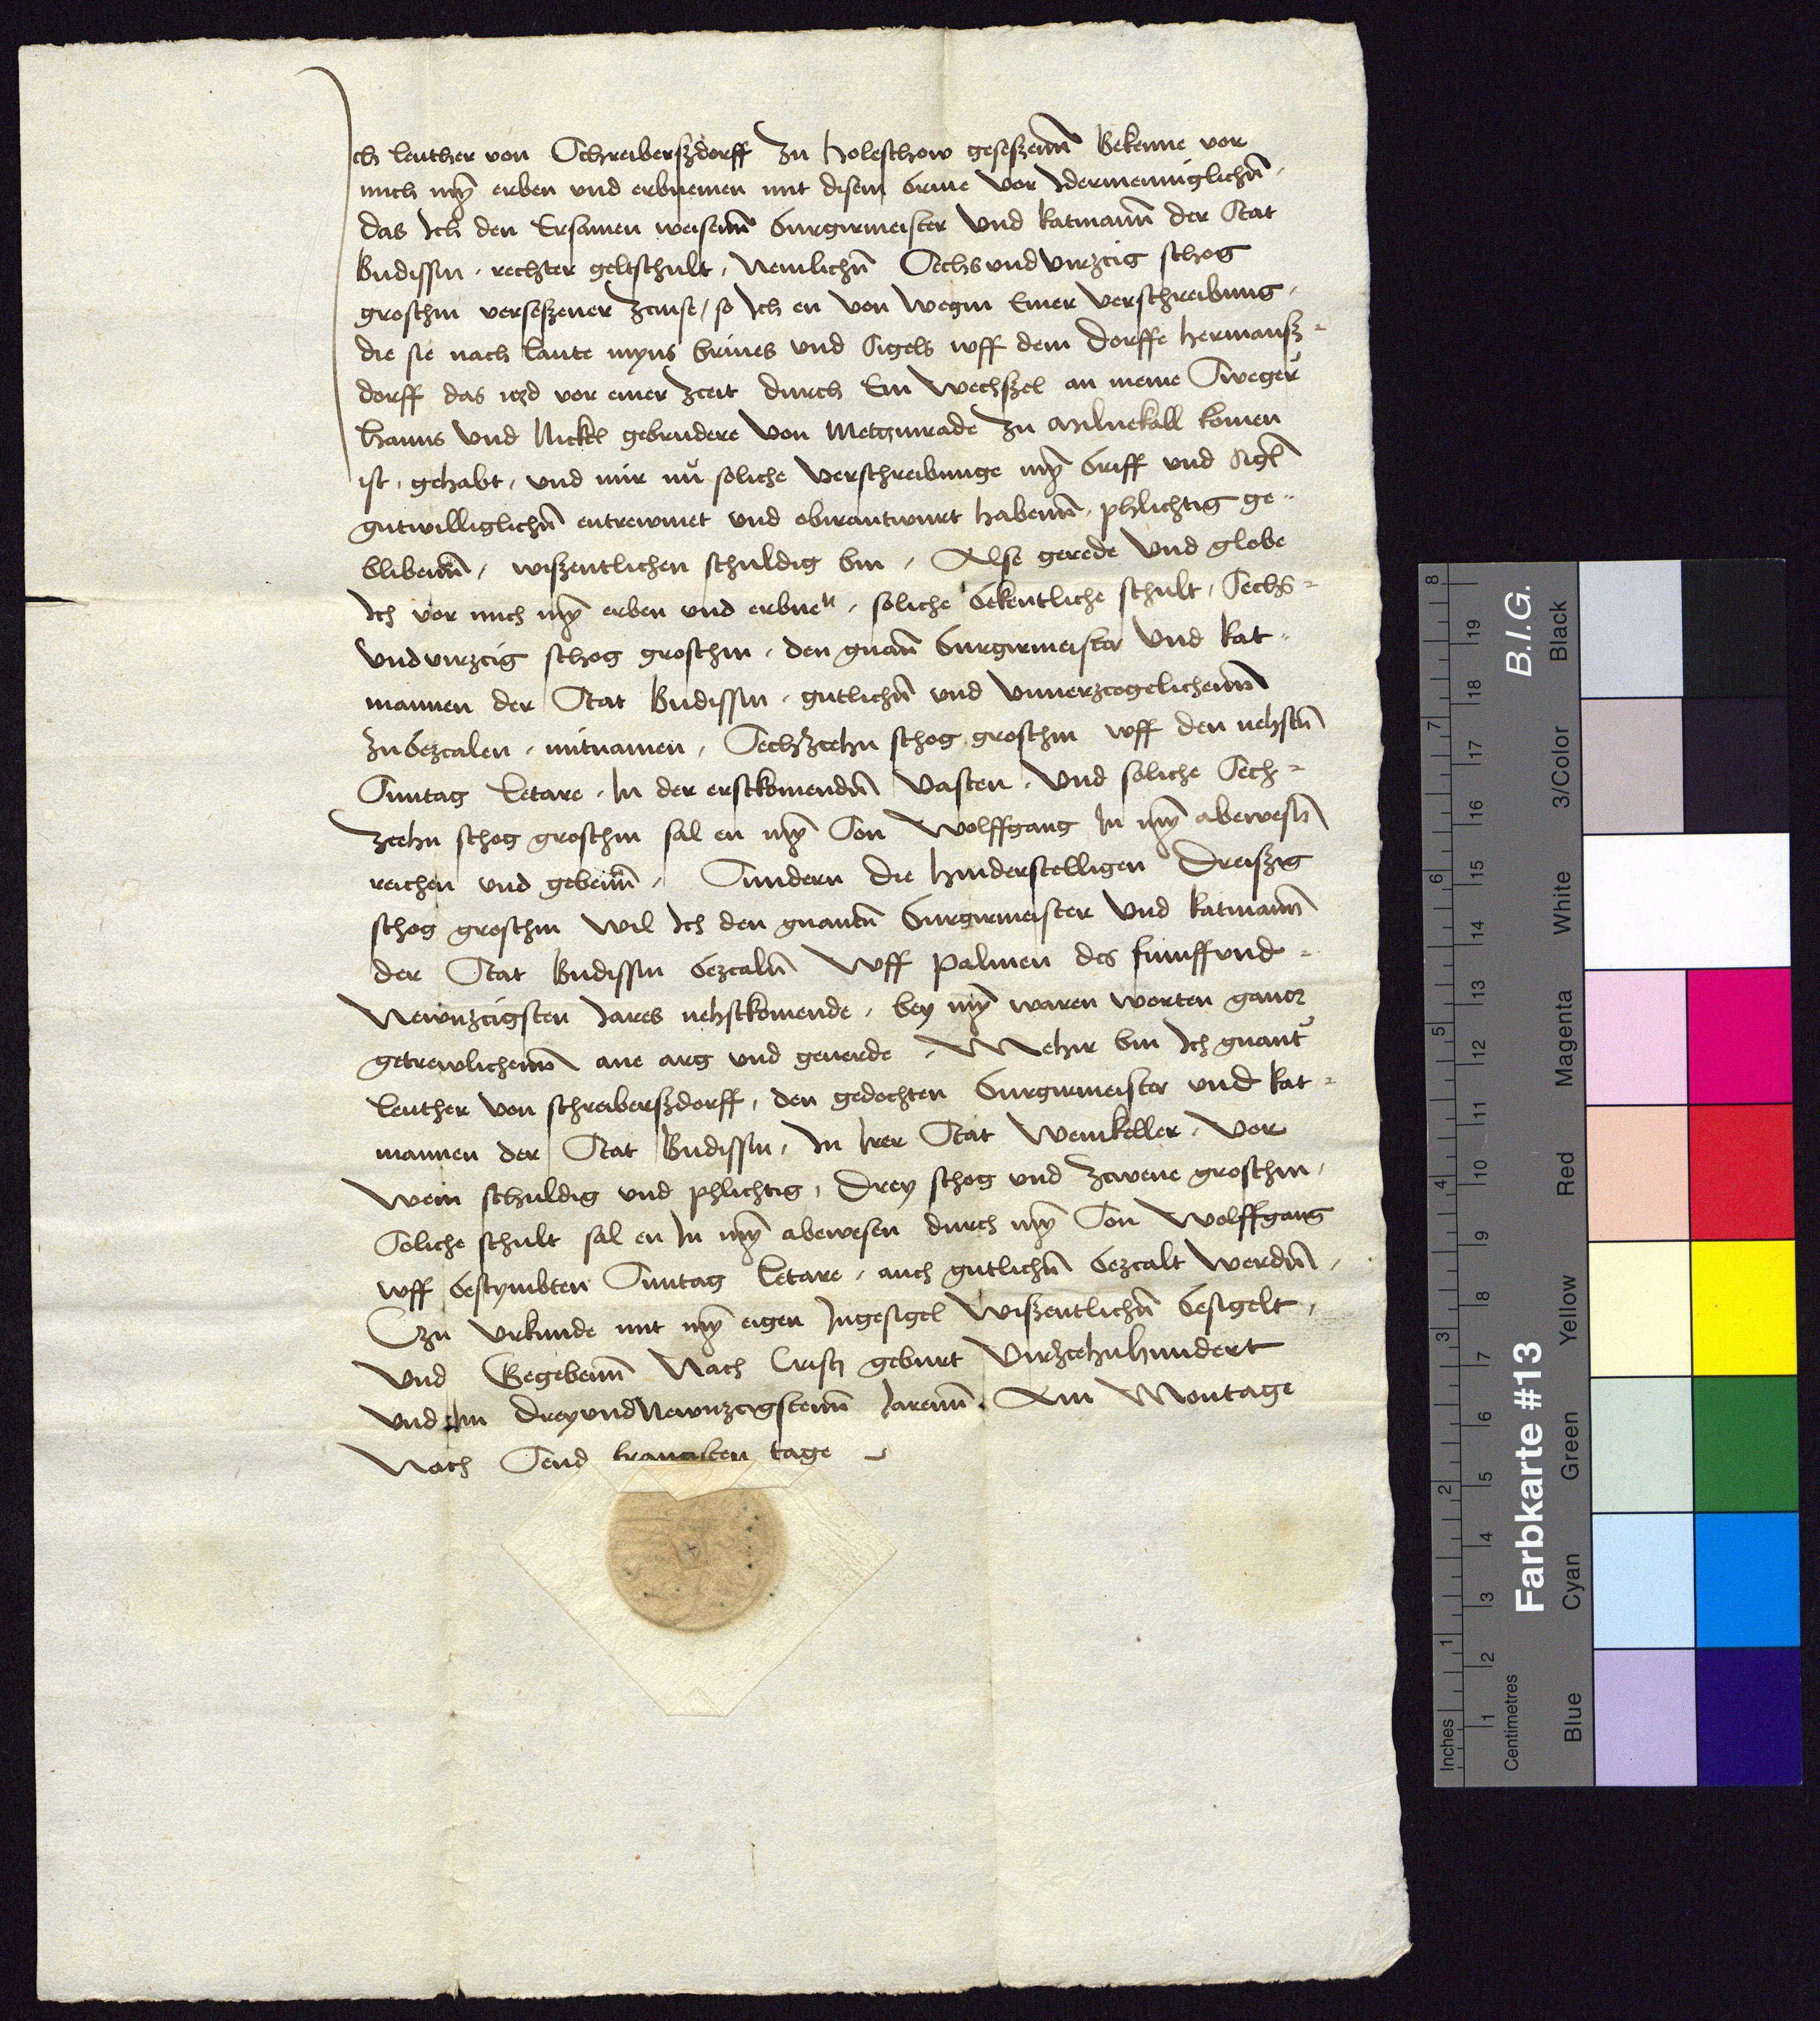 Ich leuther von Schreiberszdorff zu holeschow geseszenn Bekenne vor
mich myn erben und erbnemen mit disem brive vor Idermenniglichn,
das Ich den Ersamen weisenn burgirmeister Und Ratmann der Stat
Budissin, rechter geltschult, Nemlichn Sechsundvirzcig schog
groschin verseszener Zcinse, so Ich en von wegin Einer verschreibung,
die sie nach laute myns brives und Sigels uff dem dorffe hermansz-
dorff das itzd vor einer Zceit durch Ein Wechszel an meine Sweger
hanns Und Nickel gebrudere von Metzinrade zu Milnekall komen
ist, gehabt, und mir nu soliche verschreibunge myn briff und Sigl
gutwilliglichn entrewmet und obirantwurt habenn, phlichtig ge-
blibenn, wiszentlichen schuldig bin, Alse gerede Und globe
Ich vor mich myn erben und erbnen, soliche bekentliche schult, Sechs-
undvirzcig schog groschin, den gnann burgirmeister Und Rat-
mannen der Stat Budissin, gutlichn und unuerzcogelichenn
zubezcalen, mitnamen, Sechszcehn schog groschin uff den nehstn
Suntag Letare, In der erstkomendin Vasten, Und soliche Sech-
zcehn schog groschin sal en myn Son Wolffgang In myn abewesn
reichen und gebenn, Sundern die hinderstelligen Dreiszig
schog groschin wil Ich den gnantn burgirmeister Und Ratmann
der Stat Budissin bezcaln Uff palmen des funffund-
Newnzcigsten Jares nehstkomende, bey myn waren worten gancz
getrewlichenn ane arg und geuerde, Mehir bin Ich gnantr
leuther von schreiberszdorff, den gedochten burgirmeister und Rat-
mannen der Stat Budissin, In Irer Stat Weinkeller, vor
Wein schuldig und phlichtig, Drey schog und Zcwene groschin,
Soliche schult sal en In myn abewesen durch myn Son Wolffgang
uff bestymbten Suntag Letare, auch gutlichn bezcalt werdin,
Czu Urkunde mit myn eigen Ingesigel Wiszentlichn besigelt,
Und Gegebenn Nach Cristi geburt Virzcehnhundert
und Im dreyundNewnzcigstenn Jarenn, Am Montage
Nach Send francisken tage
Inches
Centimetres
1
2
3
4
5
6
7
8
1
2
3
4
5
6
7
8
9
10
11
12
13
14
15
16
17
18
19
Farbkarte #13
B.I.G.
Blue
Cyan
Green
Yellow
Red
Magenta
White
3/Color
Black